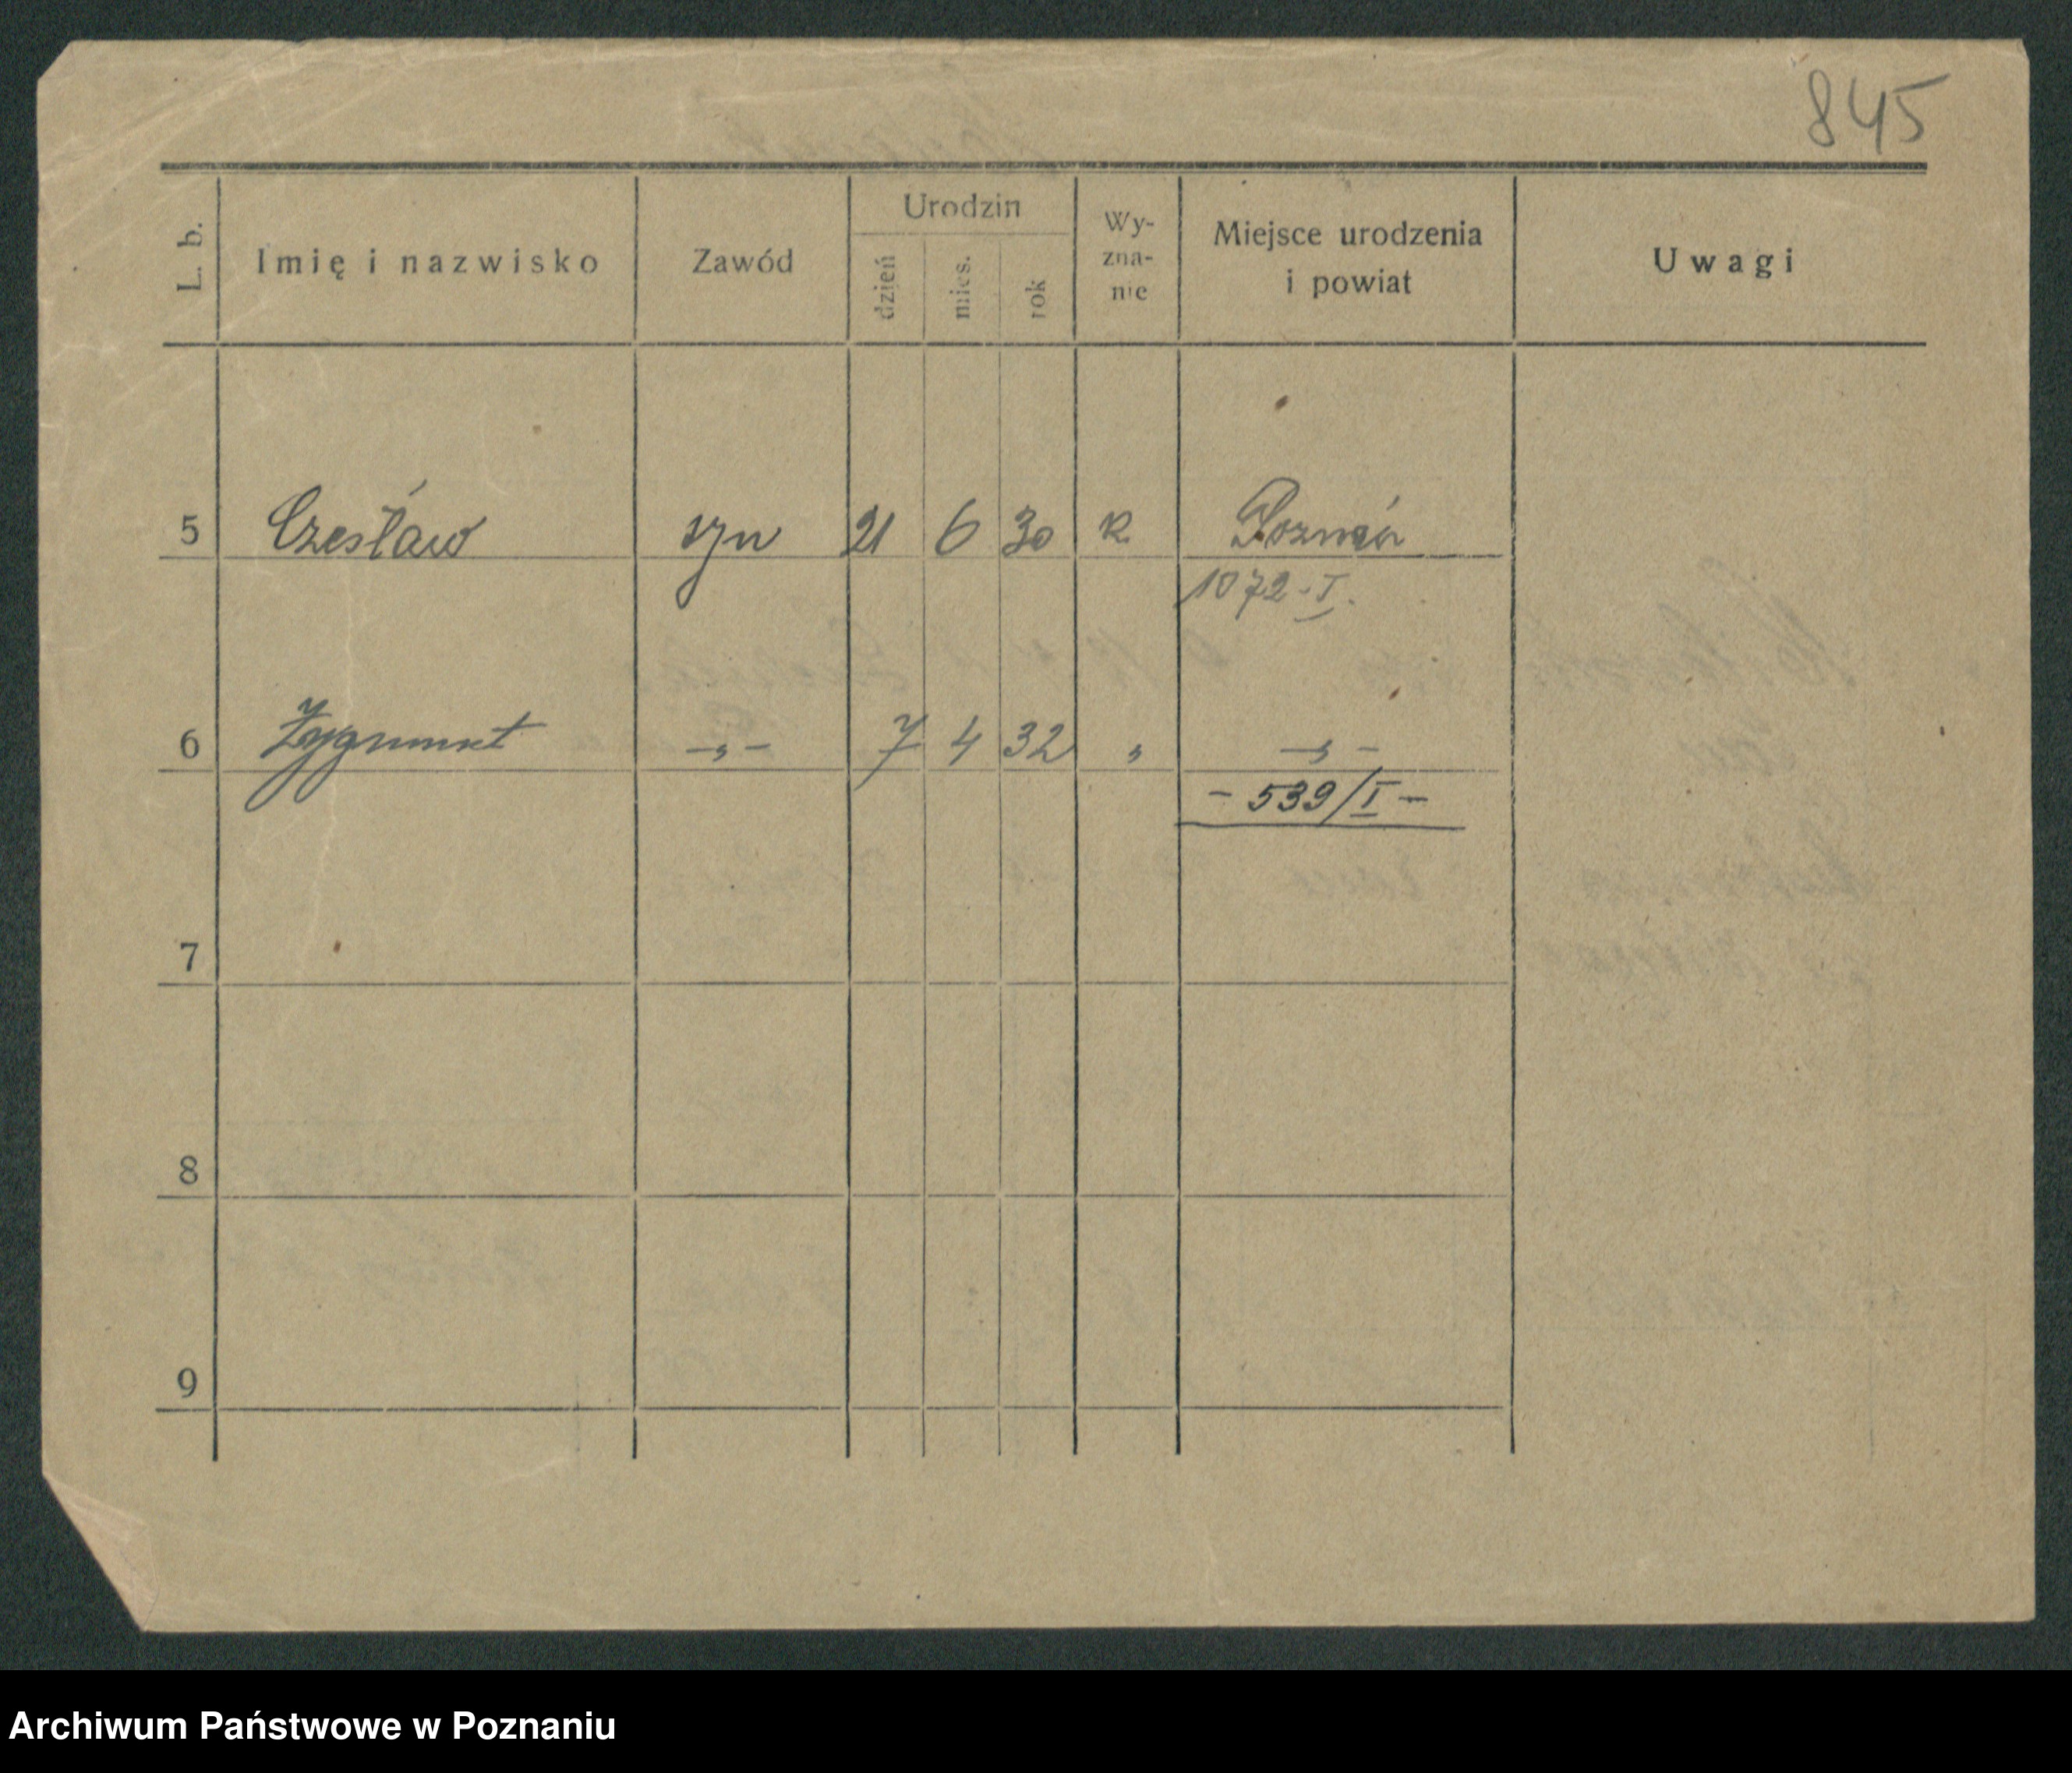 845
L. b. Imię i nazwisko Zawód Urodzin dzień mies. rok Wy-zna-nie Miejsce urodzenia i powiat Uwagi
5 Czesław syn 21 6 30 R. Poznań
1072-I.
6 Zygmunt —„— 7 4 32 „ —„—
- 539/I -
7
8
9
Archiwum Państwowe w Poznaniu